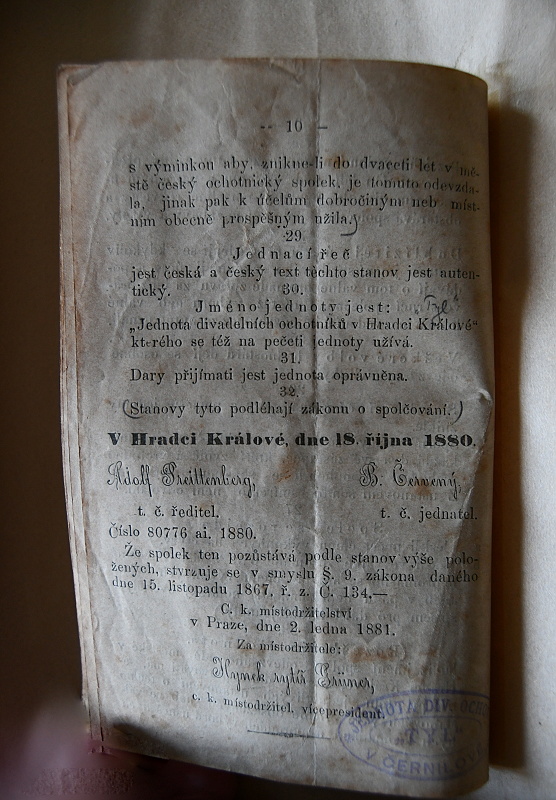 -- 10 --
s výminkou aby, znikne-li do dvaceti let v mě-
stě český ochotnický spolek, je tomuto odevzda-
la, jinak pak k účelům dobročiným neb míst-
ním obecně prospěšným užila.
29.
Jednací řeč
jest česká a český text těchto stanov jest auten-
tický.
30.
Jméno jednoty jest: „Tyl“
„Jednota divadelních ochotníků v Hradci Králové“
kterého se též na pečeti jednoty užívá.
31.
Dary přijímati jest jednota oprávněna.
32.
(Stanovy tyto podléhají zákonu o spolčování.)
V Hradci Králové, dne 18. října 1880.
Adolf Preittenberg, B. Červený,
t. č. ředitel. t. č. jednatel.
Číslo 80776 ai. 1880.
Že spolek ten pozůstává podle stanov výše polo-
žených, stvrzuje se v smyslu §. 9. zákona daného
dne 15. listopadu 1867, ř. z. Č. 134,—
C. k. místodržitelství
v Praze, dne 2. ledna 1881.
Za místodržitele:
Hynek rytíř Grüner,
c. k. místodržitel. vícepresident.
JEDNOTA DIV. OCH
TYL
V ČERNILOV